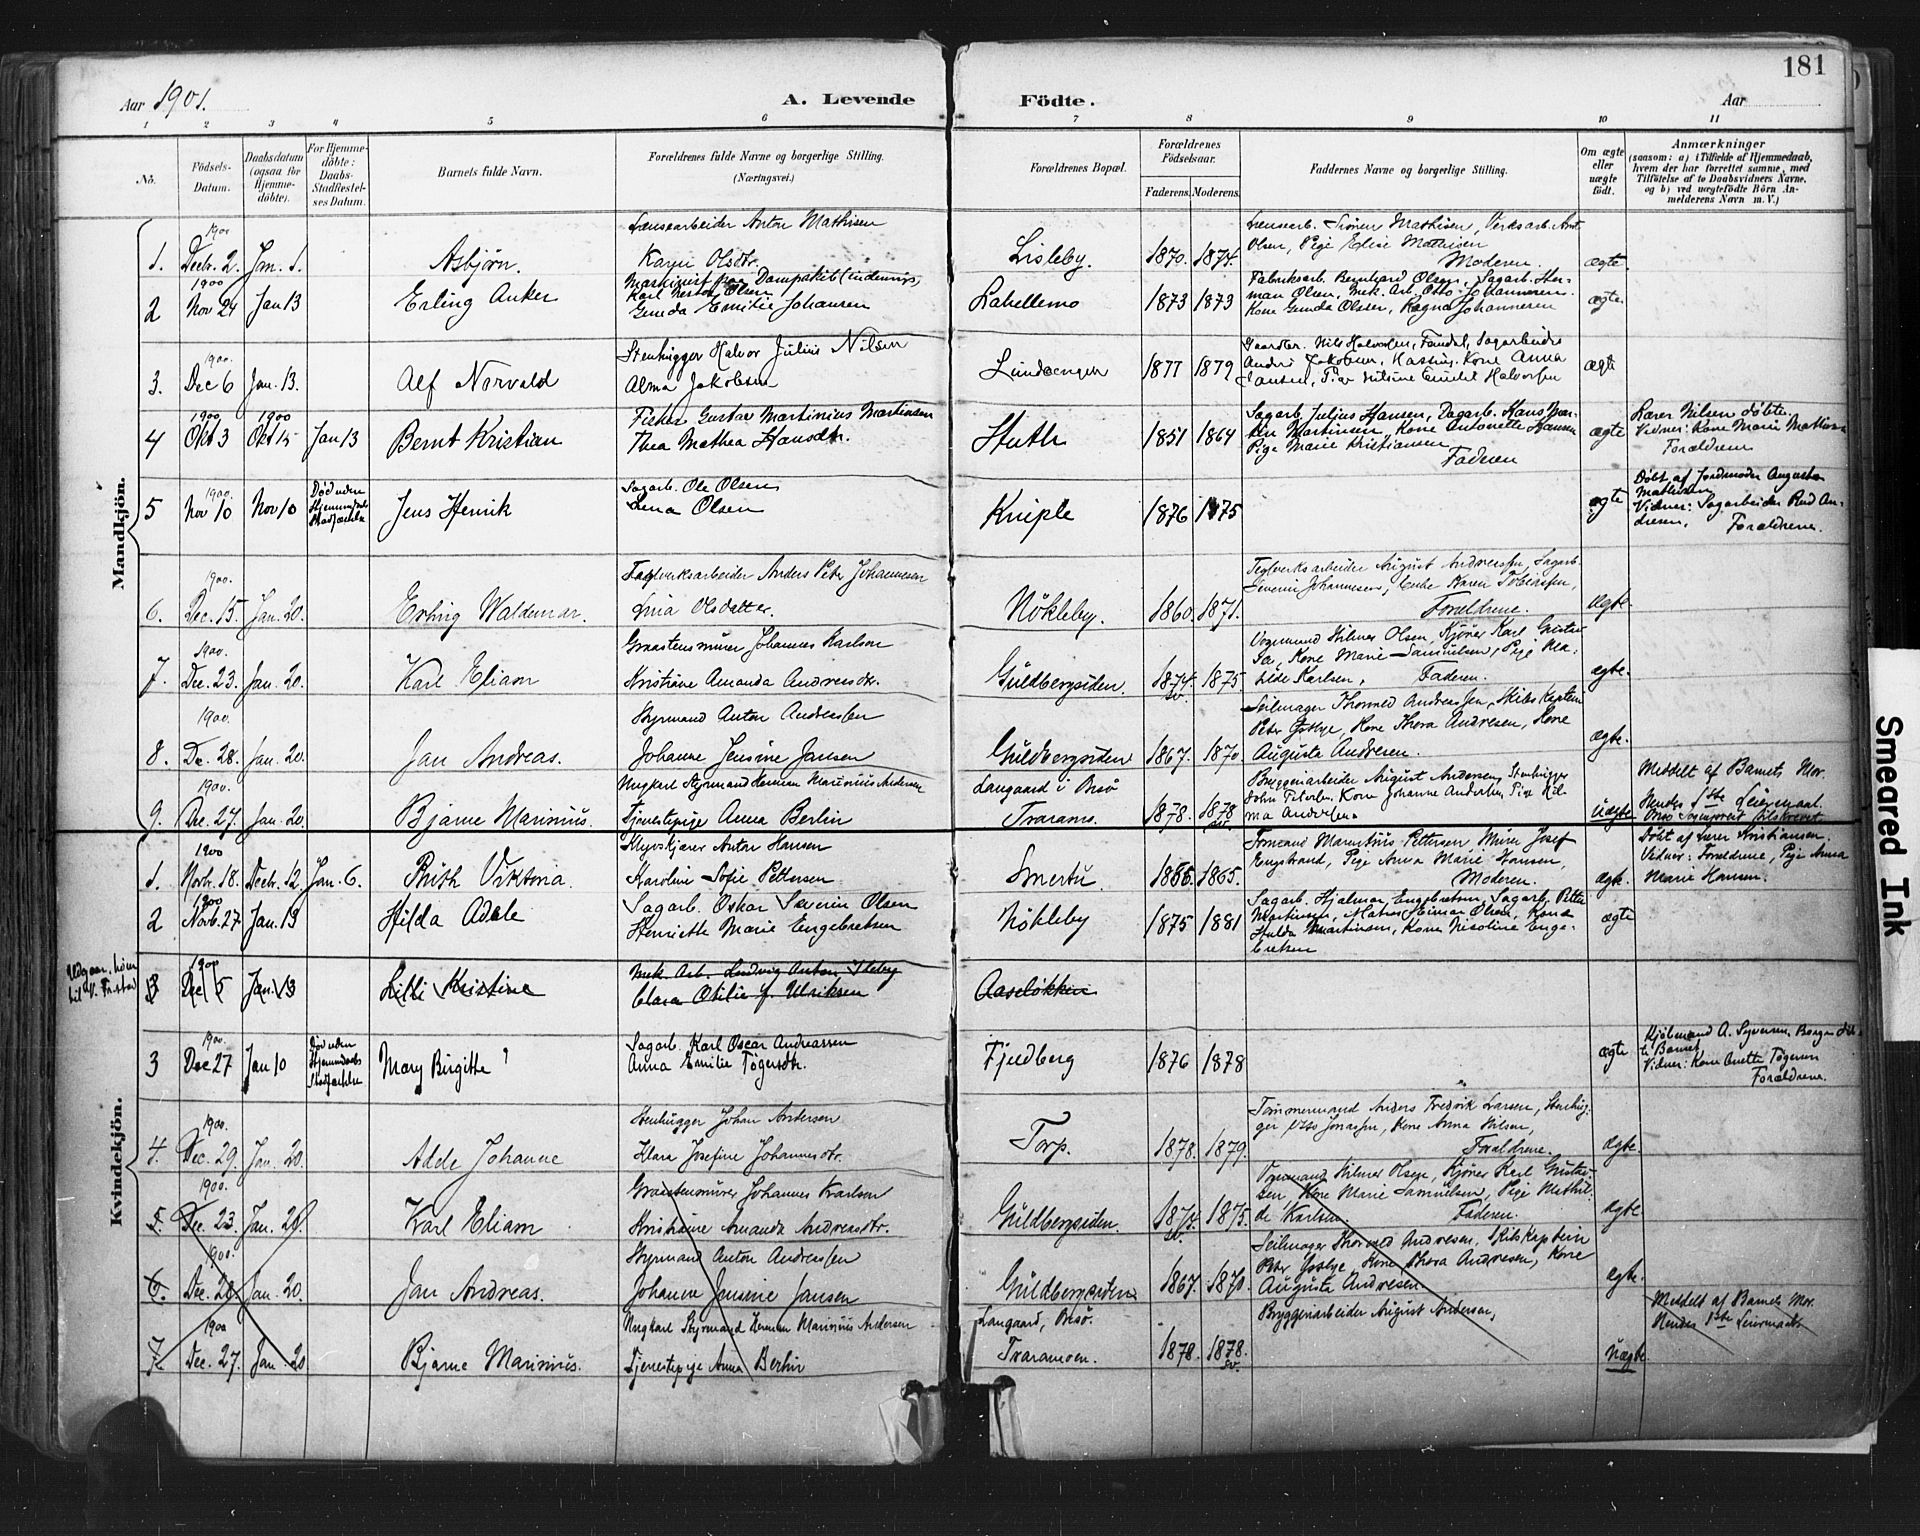 181
Aar 1901.
A. Levende Födte.
Aar
1 2 3 4 5 6 7 8 9 10 11
No.
Födsels-Datum.
Daabsdatum (ogsaa for Hjemme-döbte).
For Hjemme-döbte: Daabs-Stadfæstel-ses Datum.
Barnets fulde Navn.
Forældrenes fulde Navne og borgerlige Stilling.
(Næringsvei.)
Forældrenes Bopæl.
Forældrenes Födselsaar.
Faderens. Moderens.
Faddernes Navne og borgerlige Stilling.
Om ægte eller uægte födt.
Anmærkninger
(saasom: a) i Tilfælde af Hjemmedaab, hvem der har forrettet samme, med Tilföielse af to Daabsvidners Navne, og b) ved uægtefödte Börn An-melderens Navn m. V.)
Mandkjön.
1. 1900 Decbr. 2. Jan. 1. Asbjörn.
Lænsearbeider Anton Mathisen
Karen Olsdtr.
Lisleby. 1870. 1874.
Moderen. ægte.
2 1900 Nov 24 Jan 13 Erling Anker
Karl Nestor Olsen
Gunda Emilie Johansen
Labellemo 1873 1873
Fabriksarb. Bernhard Olsen, Sagarb. Her-
man Olsen, Mek. Arb. Otto Johannesen.
Kone Gunda Olsen, Ragna Johannesen
ægte
3. 1900. Dec 6 Jan. 13. Alf Norvald
Stenhugger Halvor Julius Nilsen
Alma Jakobsen
Lundsengen 1877 1879
ægte
4 1900 Okt 3 1900 Okt 15 Jan 13 Bernt Kristian
Fisker Gustav Martinius Martinsen
Thea Mathea Hansdtr.
Huth 1851 1864
Sagarb. Julius Hansen, Dagarb. Hans Mar-
tin Martinsen, Kone Antonette Hansen
Pige Marie Kristiansen
Faderen
ægte
Lærer Nilsen döbte.
Vidner: Kone Marie Mathisen
Forældrene
5 1900. Nov 10 Nov 10 Död uden Hjemmedaabs Stadfæstelse
Jens Henrik
Sagarb. Ole Olsen
Lena Olsen
Kniple 1876 1875
ægte
Döbt af Jordmoder Augusta
Mathisen
Vidner: Sagarbeider Red An-
dresen, Forældrene.
6. 1900. Dec. 15. Jan. 20. Erling Waldemar.
Teglverksarbeider Anders Petr Johannesen
Lina Olsdatter.
Nökleby. 1860. 1871.
Teglverksarbeider August Andreassen, Sagarb.
Severin Johannesen, Enke Karen Tobiassen,
Forældrene. ægte.
7. 1900. Dec. 23. Jan. 20. Karl Eliam
Graastensmurer Johannes Karlson
Kristiane Amanda Andreasdtr.
Guldbergsiden. 1874. sv. 1875
Vognmand Hilmer Olsen, Kjörer Karl Gustav-
sen, Kone Marie Samuelsen, Pige Ma-
tilde Karlsen, Faderen.
ægte.
8. 1900. De. 28. Jan. 20. Jan Andreas.
Styrmand Anton Andreassen
Johanne Jensine Jansen
Guldbergsiden 1867. 1870.
Seilmager Thorvald Andreassen, Skibskaptein
Peter Gosbye, Kone Thora Andresen, Kone
Augusta Andresen.
ægte.
9. 1900. Dec. 27. Jan. 20. Bjarne Marinius.
Ungkarl Styrmand Herman Marinius Andersen
Tjenestepige Anna Berlin
Langaard i Onsö
Traramo. 1878. 1878 sv.
Bryggeriarbeider August Andersen, Stenhugger
uægte
Meddelt af Barnets Mor.
Hendes 1ste Leiermaal.
Kvindekjön.
1. 1900 Novbr. 18. Decbr. 12. Jan. 6. Brith Viktoria.
Klipskjærer Anton Hansen
Karoline Sofie Pettersen
Smertu. 1866. 1865.
Formand Marentius Pettersen, Murer Josef
Engstrand, Pige Anna Marie Hansen,
Moderen. ægte.
Döbt af Lærer Kristiansen.
Vidner: Forældrene, Pige Anna
Marie Hansen.
2 1900 Novb. 27 Jan. 13 Hilda Adele
Sagarb. Oskar Severin Olsen
Henriette Marie Engebretsen
Nökleby 1875 1881
Sagarb. Hjalmar Engebretsen, Sagarb. Petter
Martinsen, Matros Einar Olsen, Kone
Hulda Martinsen, Kone Nicoline Enge-
bretsen
ægte
3 1900 Dec 5 Jan. 13 Lilli Kristine
Mek. Arb. Ludvig Anton Ileby
Clara Otilie f. Ulriksen
Aaselökken
3 1900. Dec 27 Jan 10 Död uden Hjemmedaabs Stadfæstelse
Mary Birgitte ?
Sagarb. Karl Oscar Andreassen
Anna Emilie Tögersdtr.
Fjeldberg 1876 1878
ægte
Kjöbmand A. Syversen Borge döb-
te Barnet
Vidner: Kone Anette Tögersen
Forældrene.
4. 1900. Dec. 29. Jan. 20. Adde Johanne
Stenhugger Johan Andersen
Klara Josefine Johannesdtr.
Torp. 1878. 1879.
Tömmermand Anders Fredrik Larsen, Stenhug-
ger Otto Jonassen, Kone Anna Nilsen,
Forældrene. ægte.
5. 1900. Dec. 23. Jan. 20. Karl Eliam
Graastensmurer Johannes Karlson
Kristiane Amanda Andreasdtr.
Guldbergsiden. 1874. sv. 1875.
Vognmand Hilmer Olsen, Kjörer Karl Gustav-
sen, Kone Marie Samuelsen, Pige Mathil-
de Karlsen Faderen.
ægte.
6. 1900. Dec. 28. Jan. 20. Jan Andreas.
Styrmand Anton Andreassen
Johanne Jensine Jansen
Guldbergsiden 1867. 1870.
Seilmager Thorvald Andresen, Skibskaptein
Peter Gosbye, Kone Thora Andresen, Kone
Augusta Andresen
ægte.
7. 1900 Dec. 27. Jan. 20 Bjarne Marinius.
Ungkarl Styrmand Herman Marinius Andersen
Tjenestepige Anna Berlin
Langaard, Onsö.
Traramoen. 1878. 1878. sv.
Bryggeriarbeider August Andersen,
uægte
Meddelt af Barnets Mor.
Hendes 1ste Leiermaal
Smeared Ink